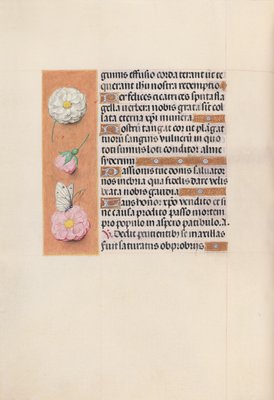 gumis effusio corda terant ut te
querant ihu nostra redemptio
Per felices cicatrices sputa fla
gella verbera nobis grata sint col
lata eterna xpi munera.
Nostrū tangat cor ne plagaꝝ
tuorū sanguis vulnerū in quo
toti simus loti conditor alme
syderum
Passionis tue donis saluator
nos inebria qua fidelis dare velis
beata nobis gaudia.
Laus honor xpo vendito et si
ne causa prodito passo mortem
pro populo in aspero patibulo. a.
℣. Dedit percutientibus se maxillas
Et saturatus obprobrijs.